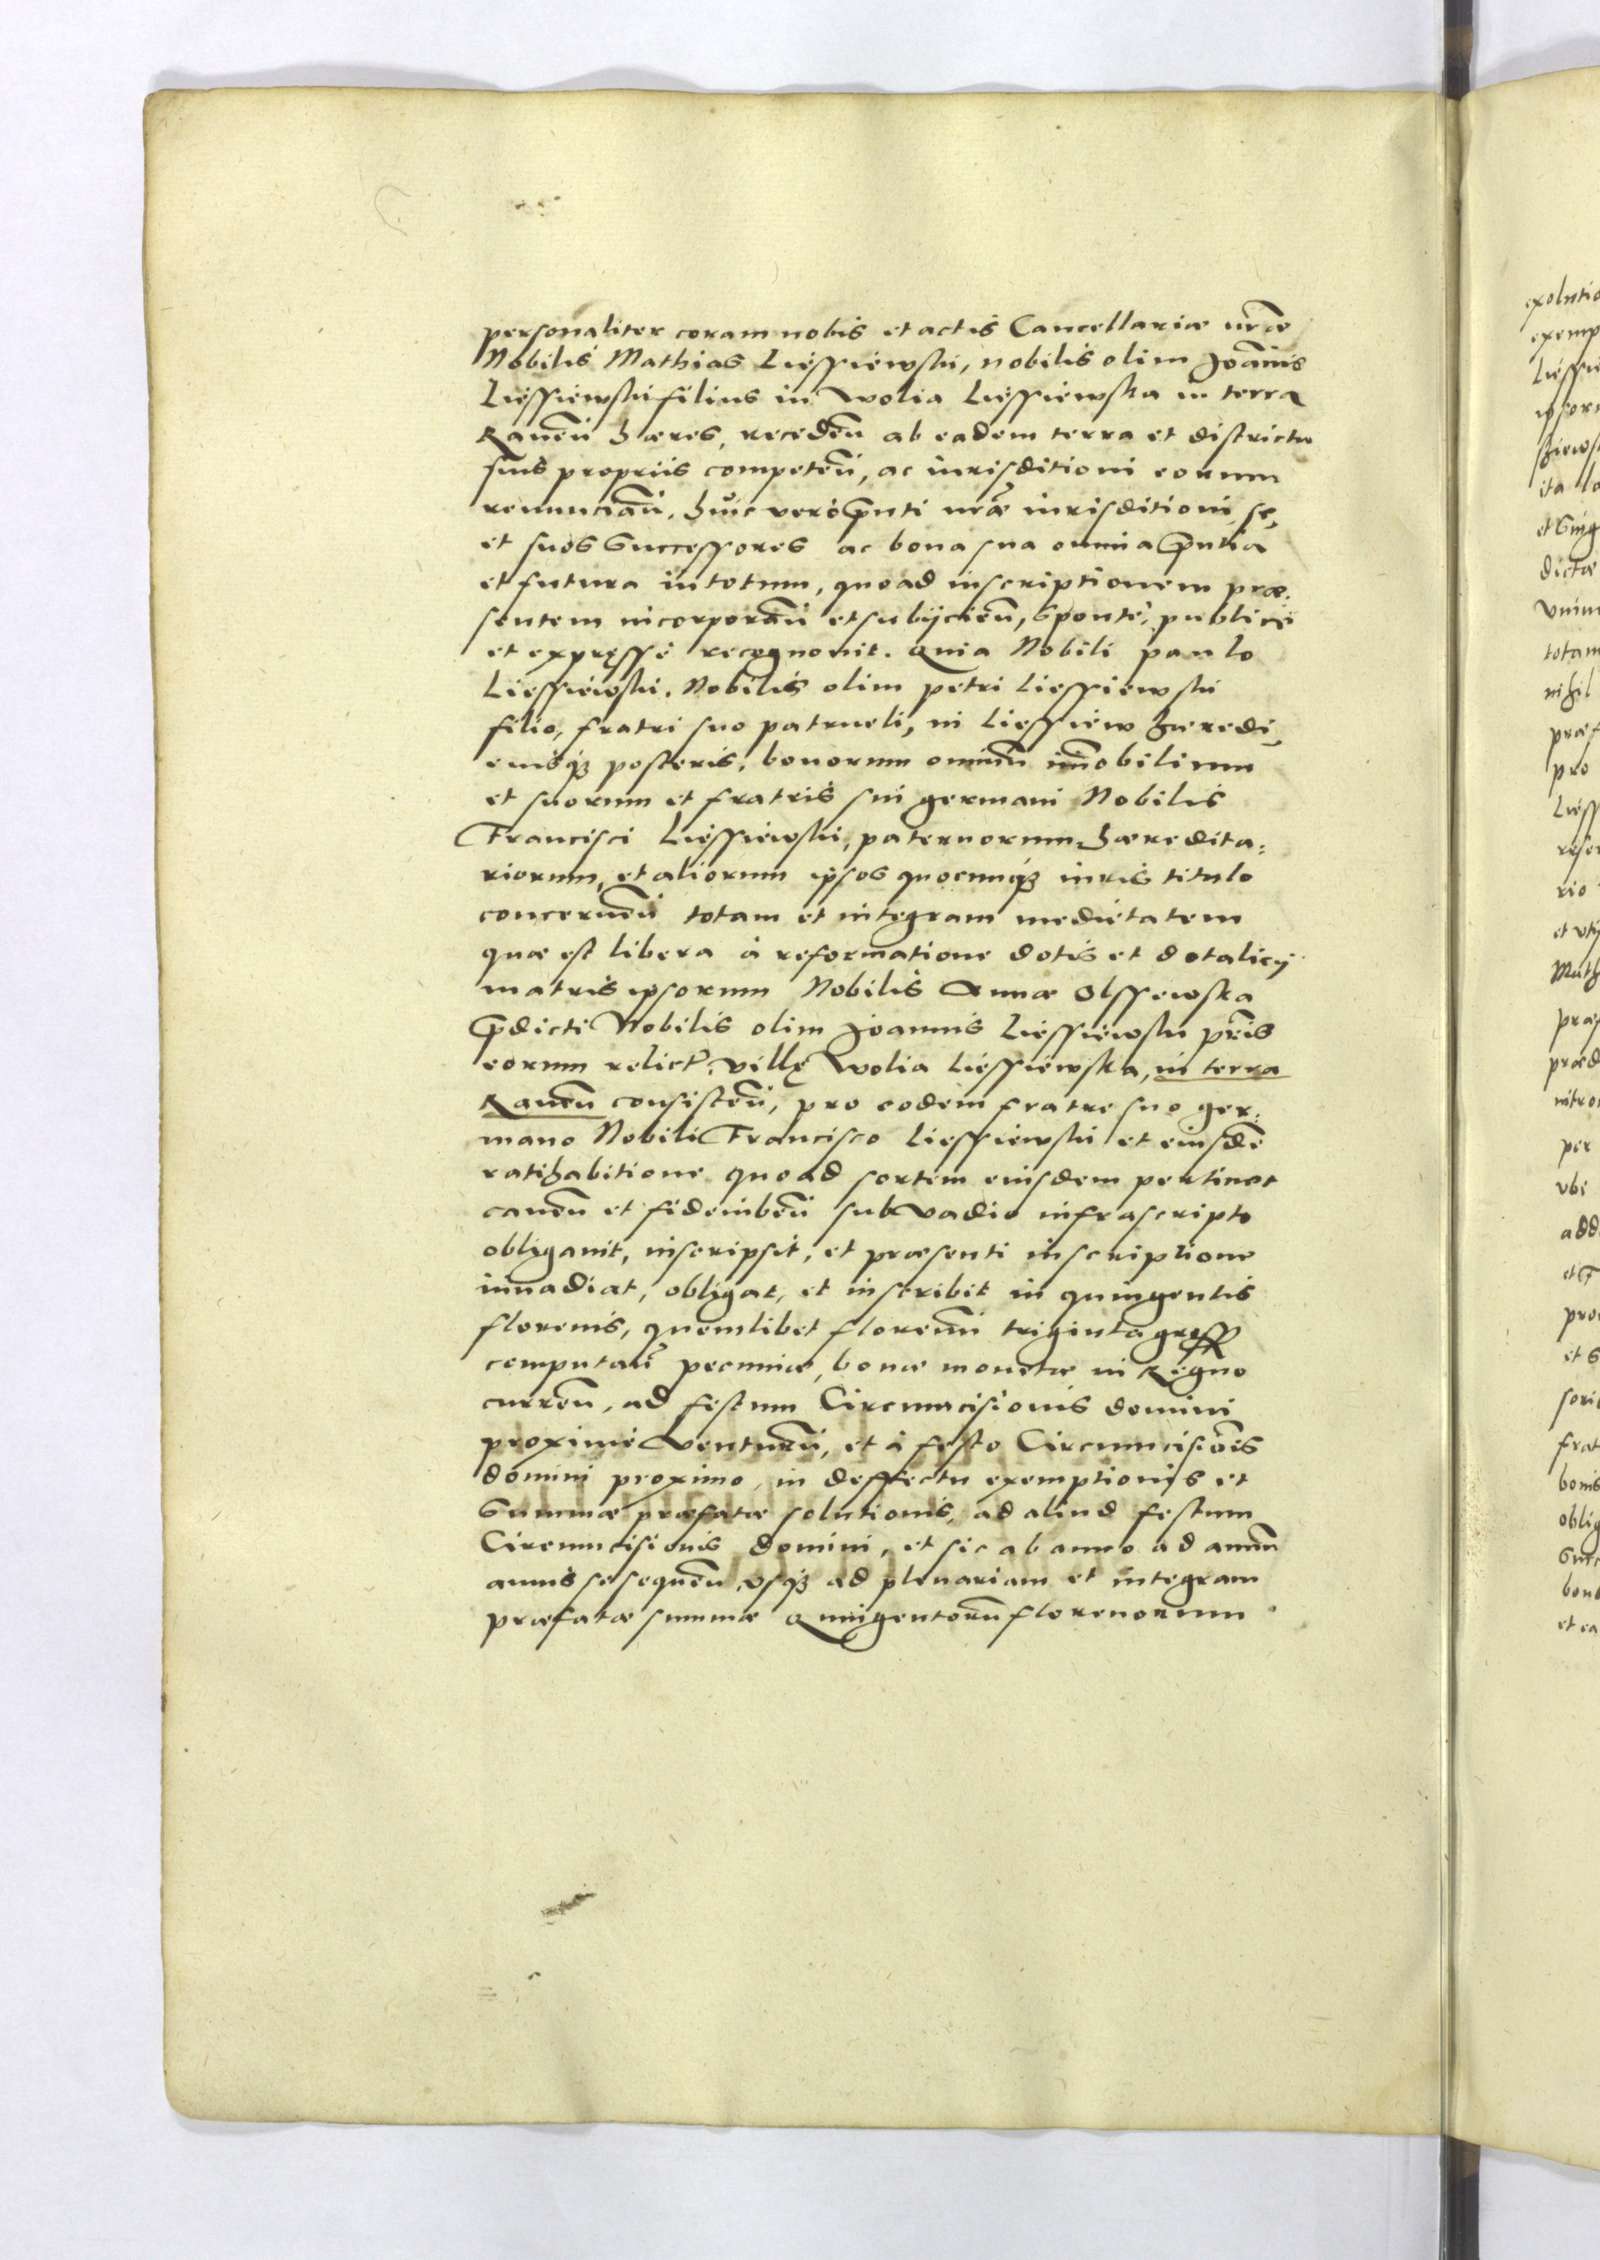 personaliter coram nobis et actis Cancellariæ nr̄æ
Nobilis Mathias Liessiewski, nobilis olim Joānnis
Liessiewski filius in Wolia Liessiewska in terra
Rauen̄ hæres, receden̄ ab eadem terra et districtu
suis propriis competen̄, ac iurisditioni eorum
renuncian̄, huic verò p̄nti nr̄æ iurisditioni, se,
et suos Successores ac bona sua omnia p̄ntia
et futura in totum, quoad inscriptionem præ:
sentem incorporan̄ et subijcien̄, sponte, publicè
et expressè recognouit. Quia Nobili Paulo
Liessiewski, Nobilis olim Petri Liessiewski
filio, fratri suo patrueli, in Liessiew hæredi,
eiusq3 posteris, bonorum omniū im̄obilium
et suorum et fratris sui germani Nobilis
Francisci Liessiewski, paternorum, hæredita:
riorum, et aliorum ipsos quocunq3 iuris titulo
concernen̄ totam et integram medietatem
quæ est libera à reformatione dotis et dotalicij
matris ipsorum Nobilis Annæ Olssewska
p̄dicti Nobilis olim Joannis Liessiewski pr̄is
eorum relictæ, villę Wolia Liessiewska, in terra
Rauen̄ consisten̄, pro eodem fratre suo ger:
mano Nobili Francisco Liessiewski et eiusdē
ratihabitione quoad sortem eiusdem pertinet
cauen̄ et fideiuben̄ sub vadio infrascripto
obligauit, inscripsit, et præsenti inscriptione
inuadiat, obligat, et inscribit in quingentis
florenis, quemlibet florenū triginta gross
computan̄ pecuniæ, bonæ monetæ in Regno
curren̄, ad festum Circumcisionis domini
proximè venturū, et à festo Circumcisiōis
domini proximo, in deffectu exemptionis et
Summæ præfatæ solutionis, ad aliud festum
Circumcisionis domini, et sic ab anno ad annū
annis se sequen̄ usq3 ad plenariam et integram
præfatæ summæ Quingentorū florenorum